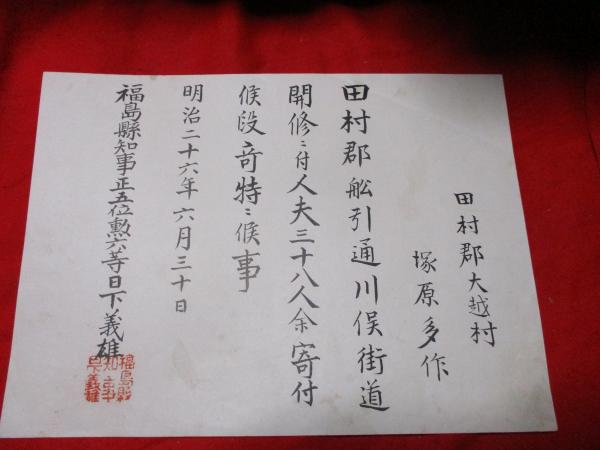 田村郡大越村
塚原多作
田村郡舩引通川俣街道
開修ニ付人夫三十八人余寄付
候段奇特ニ候事
明治二十六年六月三十日
福島縣知事正五位勲六等日下義雄
福島縣
知事
日下義雄